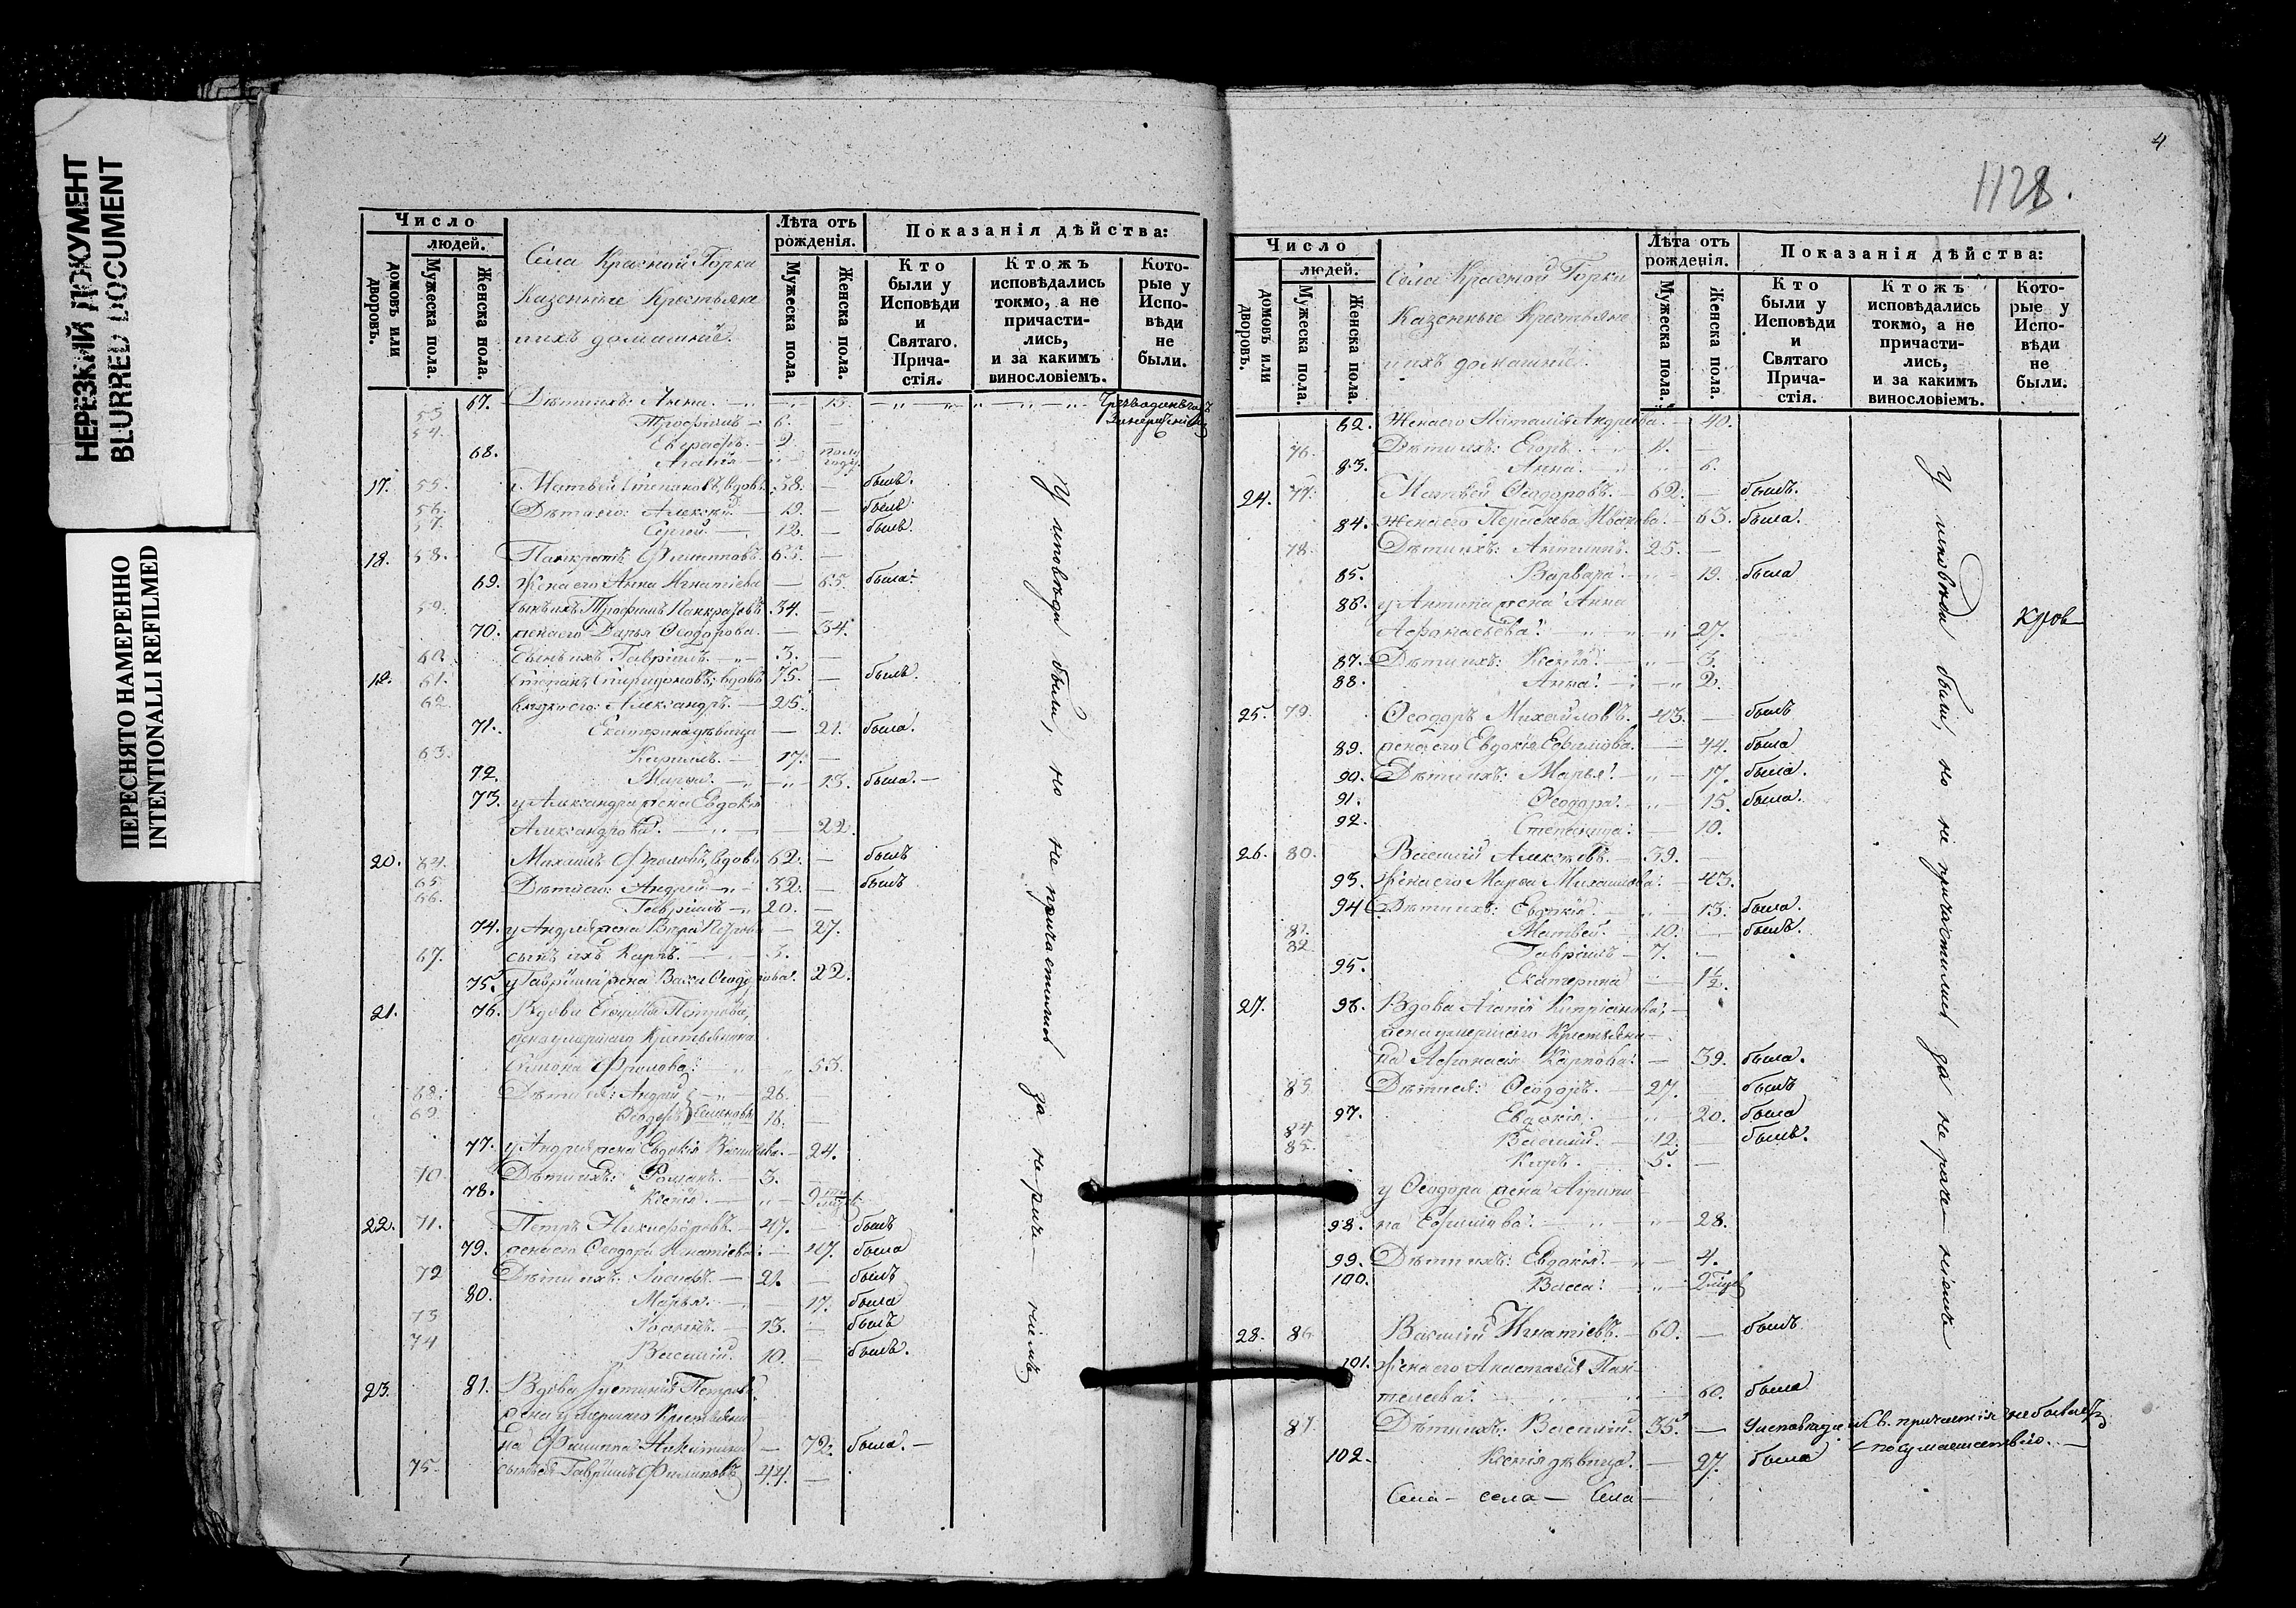 НЕРЕЗКИЙ ДОКУМЕНТ
BLURRED DOCUMENT
ПЕРЕСНЯТО НАМЕРЕННО
INTENTIONALLI REFILMED
Число
людей.
домовъ или дворовъ.
Мужеска пола.
Женска пола.
Села Красной Горки
Казенныя Крестьяне
и ихъ домашніе.
Лѣта отъ рожденія.
Мужеска пола.
Женска пола.
Показанія дѣйства:
Кто были у Исповѣди и Святаго Прича-стія.
Ктожъ исповѣдались токмо, а не причасти-лись, и за какимъ винословіемъ.
Кото-рые у Испо-вѣди не были.
67. Дѣти ихъ: Анна. — 13.
53. Трофимъ — 6. —
54. Евграфъ. — 2.
68. Агапія — полъ года.
17. 55. Матвей Степановъ, вдовъ 38. — былъ.
56. Дѣти его: Алексѣй. — 19. — былъ
57. Сергей. — 12. — былъ
18. 58. Панкратъ Филипповъ. 65. —
69. Жена его Анна Игнатіева — 65. была.
59. сынъ ихъ Трофимъ Панкратовъ 34. —
70. жена его Дарья Ѳеодорова. — 34.
60. Сынъ ихъ Гавріилъ. — 3. —
19. 61. Степанъ Спиридоновъ, вдовъ 75. — былъ.
62. Александръ. — 25.
71. Екатерина дѣвица — 21. была.
63. Кириллъ. — 17. —
72. Марѳа. — 13. была. —
73. у Александра жена Евдокія
Александрова. — 22.
20. 64. Михаилъ Фроловъ, вдовъ 62. — былъ
65. Дѣти его: Андрей — 32. — былъ
66. Гавріилъ — 20. —
74. у Андрея жена Вѣра Петрова — 27.
67. сынъ ихъ Карпъ. — 3.
75. у Гавріила жена Васса Ѳеодорова. 22.
21. 76. Вдова Петрова,
жена умершаго Крестьянина
Симона Фролова. 53.
68. Дѣти ея: Андрей — 26.
69. Ѳеодоръ Семеновы 16. —
77. у Андрея жена Евдокія Васильева. — 24.
70. Дѣти ихъ: Романъ. — 3.
78. Ксенія. — 9
22. 71. Петръ Никифоровъ. — 47. — былъ
79. жена его Ѳеодора Игнатіева. — 47. была
72 Дѣти ихъ: Іосифъ. — 21. — былъ
80. Марья. — 17. была
73 Іоаннъ. — 13. — былъ
74 Василій. 10. — былъ.
23. 81. Вдова Іустинія Петрова.
жена умершаго Крестьяни
на Филиппа Никитина — 72. была. —
75. сынъ ея Гавріилъ Филиповъ 44. —
У исповѣди были, но не причастились за нераче-ніемъ
4
1128.
Число
людей.
домовъ или дворовъ.
Мужеска пола.
Женска пола.
Села Красной Горки
Казенные Крестьяне
и ихъ домашніе.
Лѣта отъ рожденія.
Мужеска пола.
Женска пола.
Показанія дѣйства:
Кто были у Исповѣди и Святаго Прича-стія.
Ктожъ исповѣдались токмо, а не причасти-лись, и за какимъ винословіемъ.
Кото-рые у Испо-вѣди не были.
82. Жена его Наталія Андреева. — 40.
76. Дѣти ихъ: Егоръ. —
83. Анна. — 6.
24. 77. Матвей Ѳеодоровъ. — 62. — былъ.
84. жена его Параскева Иванова. — 63. была.
78. Дѣти ихъ: Антипъ. 25. —
85. Варвара. — 19. была
86. у Антипа жена Анна
Аѳанасьева. — 27.
87. Дѣти ихъ: Ксенія. — 3.
88. Анна. — 2.
25. 79. Ѳеодоръ Михайловъ. 43. — былъ
89. жена его Евдокія Ефимова. — 44. была
90. Дѣти ихъ: Марья. — 17. была.
91. Ѳеодора. — 15. была.
92. Степанида. — 10.
26. 80. Василій Алексѣевъ. 39. —
93. Жена его Марѳа Михайлова. — 43.
94. Дѣти ихъ: Евдокія. — 13. была.
81. Матвей. — 10. — былъ.
82. Гавріилъ — 7. —
95. Екатерина — 1½.
27. 96. Вдова Агапія Кипріанова, —
жена умершаго Крестьяни —
на Аѳонасія Карпова. — 39. была.
83. Дѣти ея: Ѳеодоръ. — 27. — былъ
97. Евдокія. — 20. была
84 Василій. — 12. — былъ.
85. Киръ. 5. —
у Ѳеодора жена Агрипи —
98. на Ефимова. — 28.
99. Дѣти ихъ: Евдокія. — 4.
100. Васса. — 2
28. 86. Василій Игнатіевъ. — 60. — былъ
101. Жена его Анастасія Пан-
телеева. — 60. была
87. Дѣти ихъ: Василій. 35. — У исповѣди и Св. причастія не былъ
по сумасшествію. —
102. Ксенія дѣвица. — 27. была
Села — села — Села —
У исповѣди были, но не причастились за нераче-ніемъ